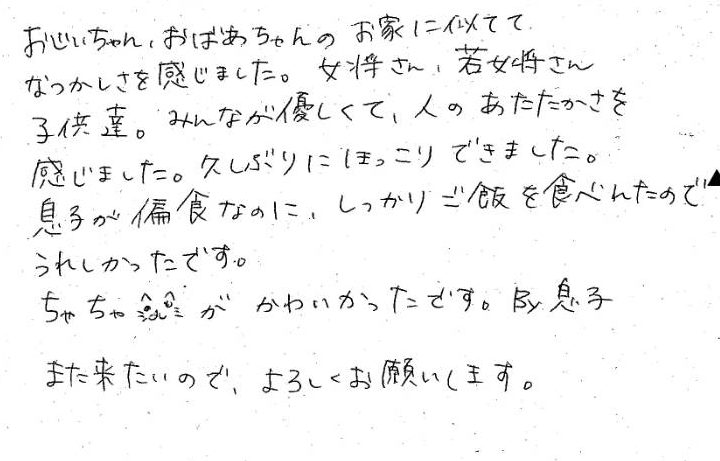 おじいちゃん、おばあちゃんの お家に似てて
なつかしさを感じました。女将さん、若女将さん
子供達。みんなが優しくて、人の あたたかさを
感じました。久しぶりにほっこりできました。
息子が偏食なのに、しっかりご飯を食べれたので
うれしかったです。
ちゃちゃ が かわいかったです。By息子
また来たいので、よろしくお願いします。